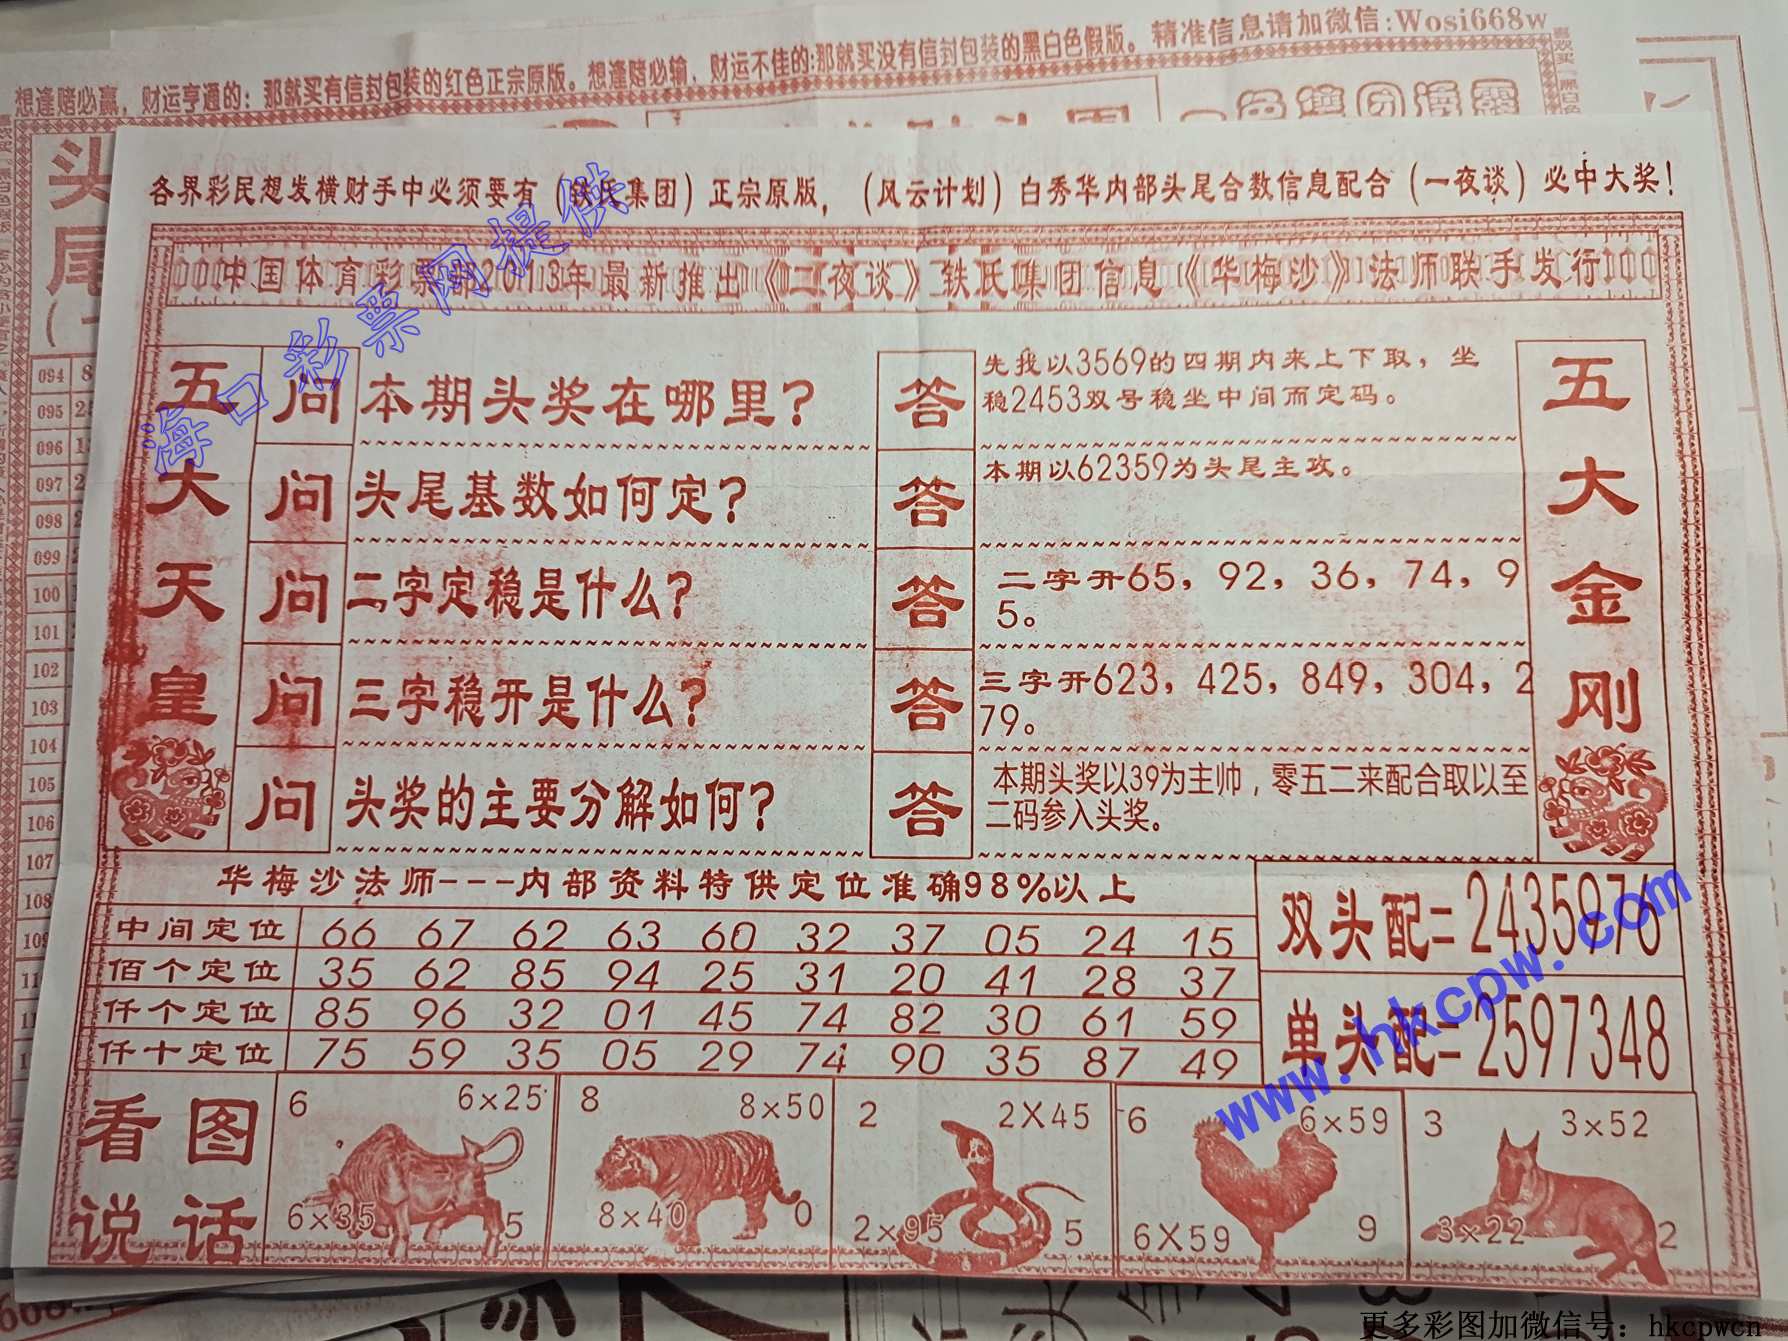 想逢赌必赢，财运亨通的：那就买有信封包装的红色正宗原版。想逢赌必输，财运不佳的:那就买没有信封包装的黑白色假版。精准信息请加微信:Wosi668w
头
尾
094 8
095
096
097
098
099
100
101
102
103
104
105
106
107
108
各界彩民想发横财手中必须要有（铁氏集团）正宗原版，（风云计划）白秀华内部头尾合数信息配合（一夜谈）必中大奖！
中国体育彩票部2013年最新推出《二夜谈》铁氏集团信息《华梅沙》法师联手发行
五大天皇
问 本期头奖在哪里？
答 先找以3569的四期内来上下取，坐
稳2453双号稳坐中间而定码。
问 头尾基数如何定？
答 本期以62359为头尾主攻。
问 二字定稳是什么？
答 二字开65，92，36，74，9
5。
问 三字稳开是什么？
答 三字开623，425，849，304，2
79。
问 头奖的主要分解如何？
答 本期头奖以39为主帅，零五二来配合取以至
二码参入头奖。
五大金刚
华梅沙法师---内部资料特供定位准确98%以上
中间定位 66 67 62 63 60 32 37 05 24 15
佰个定位 35 62 85 94 25 31 20 41 28 37
仟个定位 85 96 32 01 45 74 82 30 61 59
仟十定位 75 59 35 05 29 74 90 35 87 49
双头配=2435976
单头配=2597348
看图
说话
6 6×25
6×35 5
8 8×50
8×40 0
2 2X45
2×95 5
6 6×59
6X59 9
3 3×52
3×22 2
海口彩票网提供
www.hkcpw.com
更多彩图加微信号：hkcpwcn